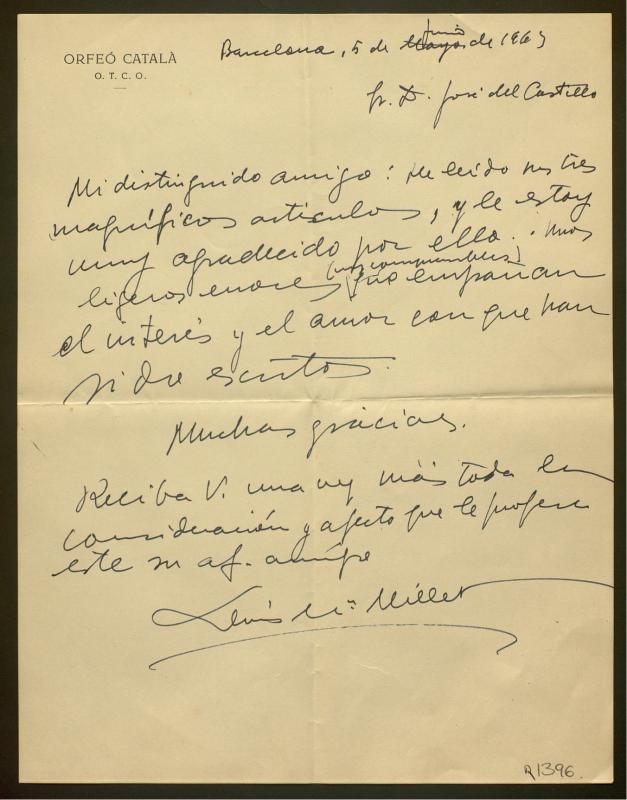 ORFEÓ CATALÀ
O. T. C. O.
Barcelona, 5 de Mayo junio de 1963
Sr. D. José del Castillo
Mi distinguido amigo: He leido sus tres
magníficos artículos, y le estoy
muy agradecido por ello. Unos
ligeros errores (muy comprensibles) no empañan
el interés y el amor con que han
sido escritos.
Muchas gracias.
Reciba V. una vez más toda la
consideración y afecto que le profesa
este su af. amigo
Lluís Mª Millet
R1396.